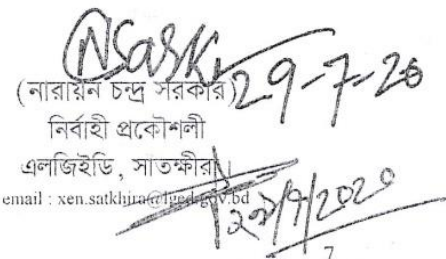 29-7-20
(নারায়ন চন্দ্র সরকার)
নির্বাহী প্রকৌশলী
এলজিইডি, সাতক্ষীরা
email : xen.satkhira@lged.gov.bd
২৯/৭/2020